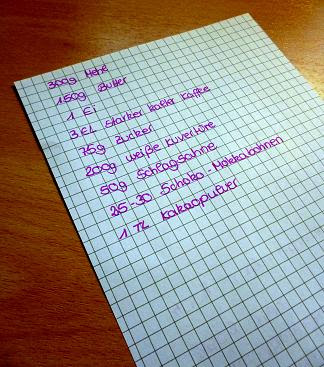 300g Mehl
150g Butter
1 Ei
3 EL starker kalter Kaffee
75g Zucker
200g weiße Kuvertüre
50g Schlagsahne
25-30 Schoko-Mokkabohnen
1 TL Kakaopulver